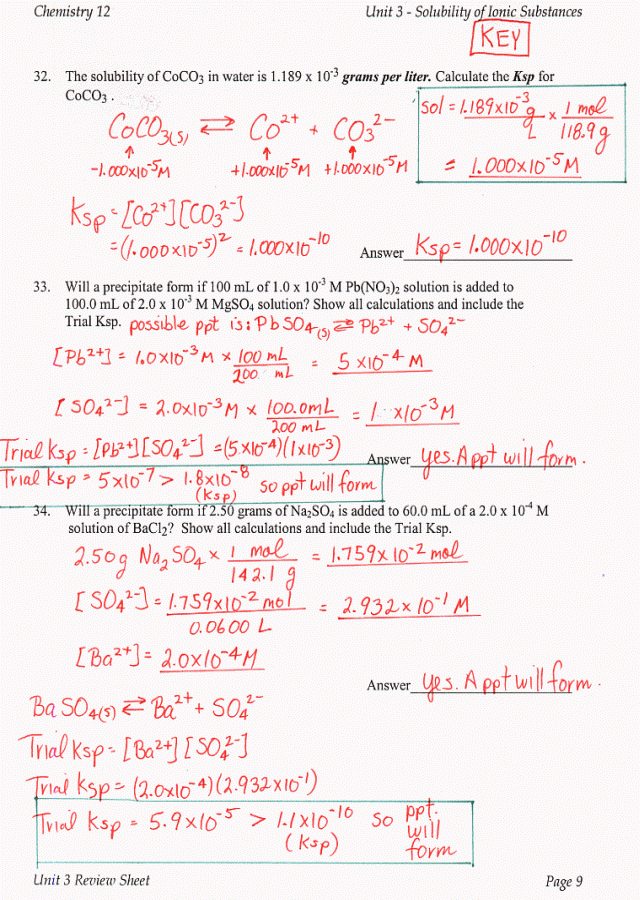 Chemistry 12 Unit 3 - Solubility of Ionic Substances
KEY
32. The solubility of CoCO₃ in water is 1.189 x 10⁻³ grams per liter. Calculate the Ksp for
CoCO₃ .
Sol = 1.189x10⁻³ g/L x 1 mol/118.9 g
= 1.000x10⁻⁵ M
CoCO₃(s) ⇄ Co²⁺ + CO₃²⁻
↑ ↑ ↑
-1.000x10⁻⁵M +1.000x10⁻⁵M +1.000x10⁻⁵M
Ksp = [Co²⁺][CO₃²⁻]
= (1.000x10⁻⁵)² = 1.000x10⁻¹⁰
Answer Ksp = 1.000x10⁻¹⁰
33. Will a precipitate form if 100 mL of 1.0 x 10⁻³ M Pb(NO₃)₂ solution is added to
100.0 mL of 2.0 x 10⁻³ M MgSO₄ solution? Show all calculations and include the
Trial Ksp. possible ppt is: PbSO₄(s) ⇄ Pb²⁺ + SO₄²⁻
[Pb²⁺] = 1.0x10⁻³ M x 100 mL/200 mL = 5 x10⁻⁴ M
[SO₄²⁻] = 2.0x10⁻³ M x 100.0mL/200 mL = 1 x10⁻³ M
Trial Ksp = [Pb²⁺][SO₄²⁻] = (5x10⁻⁴)(1x10⁻³)
Answer yes. A ppt will form.
Trial Ksp = 5x10⁻⁷ > 1.8x10⁻⁸ so ppt will form
(Ksp)
34. Will a precipitate form if 2.50 grams of Na₂SO₄ is added to 60.0 mL of a 2.0 x 10⁻⁴ M
solution of BaCl₂? Show all calculations and include the Trial Ksp.
2.50g Na₂SO₄ x 1 mol/142.1 g = 1.759x10⁻² mol
[SO₄²⁻] = 1.759x10⁻² mol/0.0600 L = 2.932 x 10⁻¹ M
[Ba²⁺] = 2.0x10⁻⁴ M
Answer yes. A ppt will form.
BaSO₄(s) ⇄ Ba²⁺ + SO₄²⁻
Trial Ksp = [Ba²⁺][SO₄²⁻]
Trial Ksp = (2.0x10⁻⁴)(2.932x10⁻¹)
Trial Ksp = 5.9x10⁻⁵ > 1.1x10⁻¹⁰ so ppt. will form
(Ksp)
Unit 3 Review Sheet Page 9